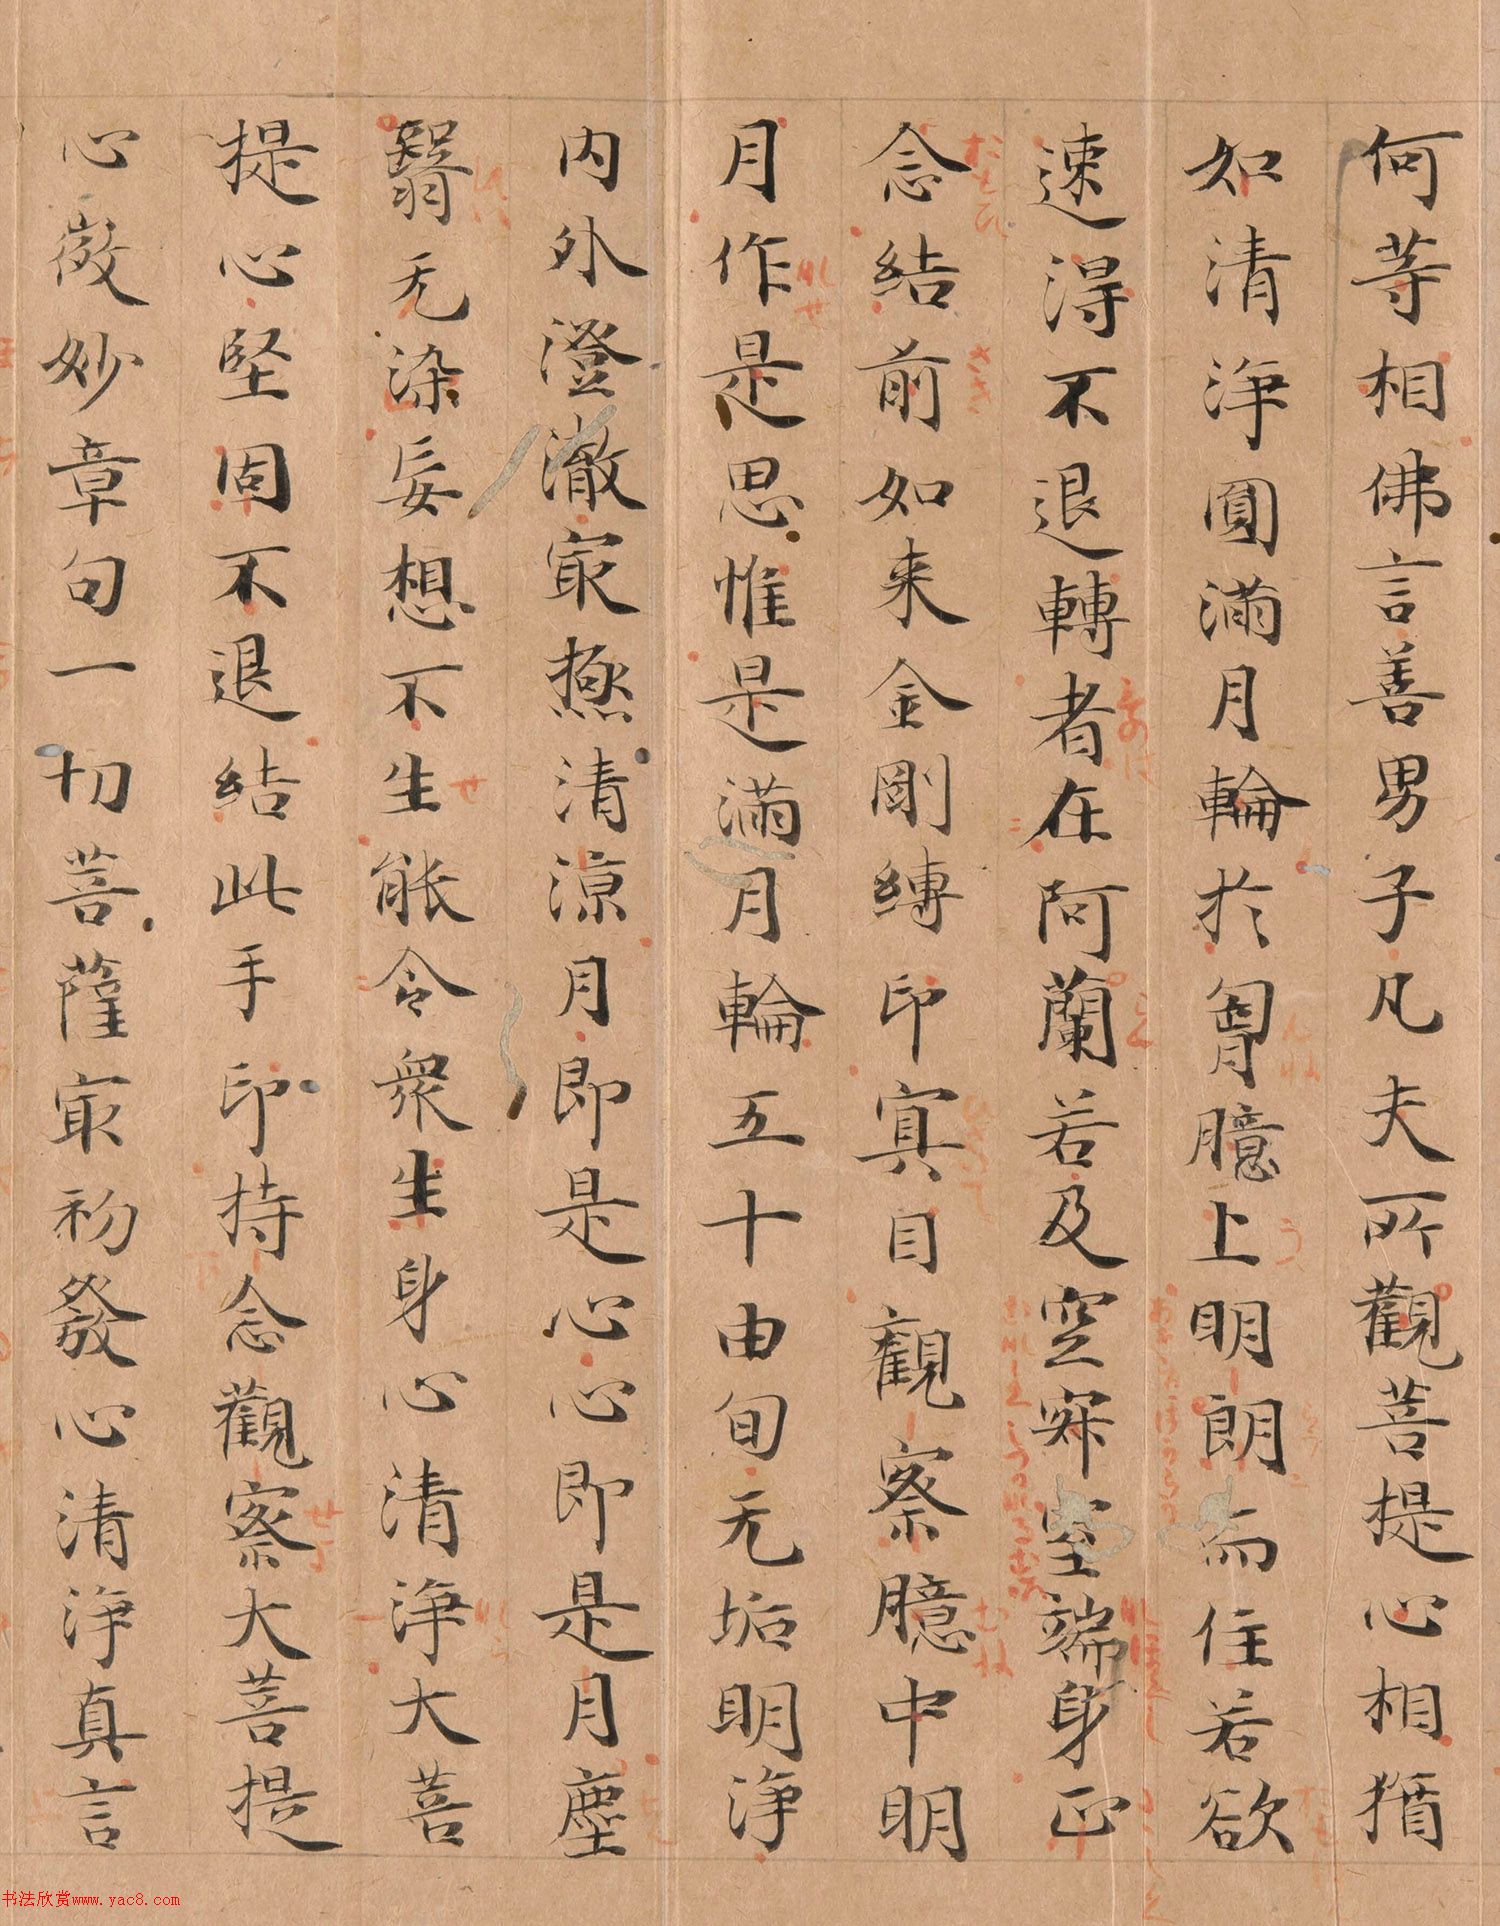 何等相佛言善男子凡夫所觀菩提心相猶
如清淨圓滿月輪於胷臆上明朗而住若欲
速得不退轉者在阿蘭若及空寂室端身正
念結前如来金剛縛印冥目觀察臆中明
月作是思惟是滿月輪五十由旬无垢明淨
内外澄澈寂極清涼月即是心心即是月塵
翳无染妄想不生能令衆生身心清淨大菩
提心堅固不退結此手印持念觀察大菩提
心微妙章句一切菩薩寂初發心清淨真言
书法欣赏www.yac8.com